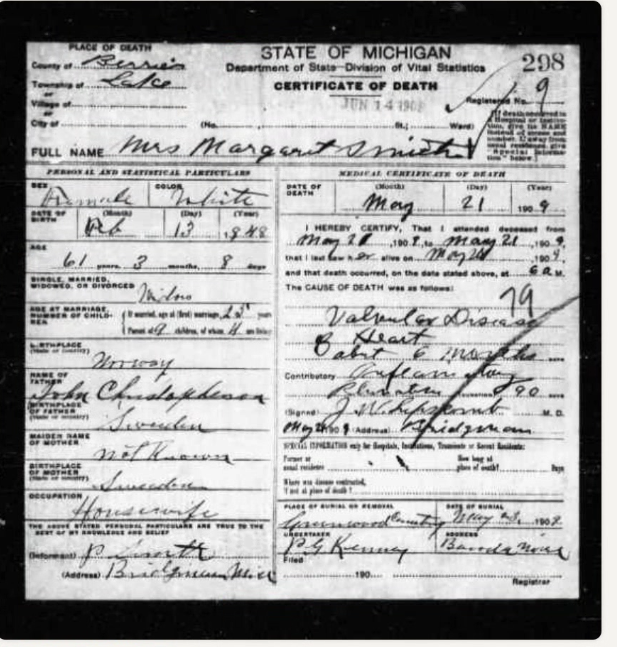 PLACE OF DEATH
County of Berrien
Township of Lake
or
Village of
or
City of
STATE OF MICHIGAN
Department of State—Division of Vital Statistics
CERTIFICATE OF DEATH
298
JUN 14
Registered No. 9
(No. St.; Ward)
FULL NAME Mrs Margaret Smith
PERSONAL AND STATISTICAL PARTICULARS
SEX Female
COLOR White
DATE OF BIRTH (Month) (Day) (Year)
Feb 13 1848
AGE
61 years, 3 months, 8 days
SINGLE, MARRIED,
WIDOWED, OR DIVORCED
Widow
AGE AT MARRIAGE,
NUMBER OF CHILDREN
If married, age at (first) marriage, years
Parent of 9 children, of whom 4 are living
BIRTHPLACE
(State or country)
Norway
NAME OF
FATHER
John Christopherson
BIRTHPLACE
OF FATHER
(State or country)
Sweden
MAIDEN NAME
OF MOTHER
Not Known
BIRTHPLACE
OF MOTHER
(State or country)
Sweden
OCCUPATION
Housewife
THE ABOVE STATED PERSONAL PARTICULARS ARE TRUE TO THE
BEST OF MY KNOWLEDGE AND BELIEF
(Informant) P. Smith
(Address) Bridgman Mich
MEDICAL CERTIFICATE OF DEATH
DATE OF
DEATH
(Month) (Day) (Year)
May 21 1909
I HEREBY CERTIFY, That I attended deceased from
May 20, 1909, to May 21, 1909,
that I last saw her alive on May 1909,
and that death occurred, on the date stated above, at 6 a M.
The CAUSE OF DEATH was as follows:
79
Valvular Disease
of Heart
6 Months
Contributory
90
(Signed) J. W. M. D.
May 1909 (Address) Bridgman
SPECIAL INFORMATION only for Hospitals, Institutions, Transients or Recent Residents:
Former or
usual residence
How long at
place of death? Days
Where was disease contracted,
if not at place of death?
PLACE OF BURIAL OR REMOVAL
Greenwood Cemetery
DATE OF BURIAL
May 23, 1909
UNDERTAKER
P.G. Kenney
ADDRESS
Filed 190
Registrar